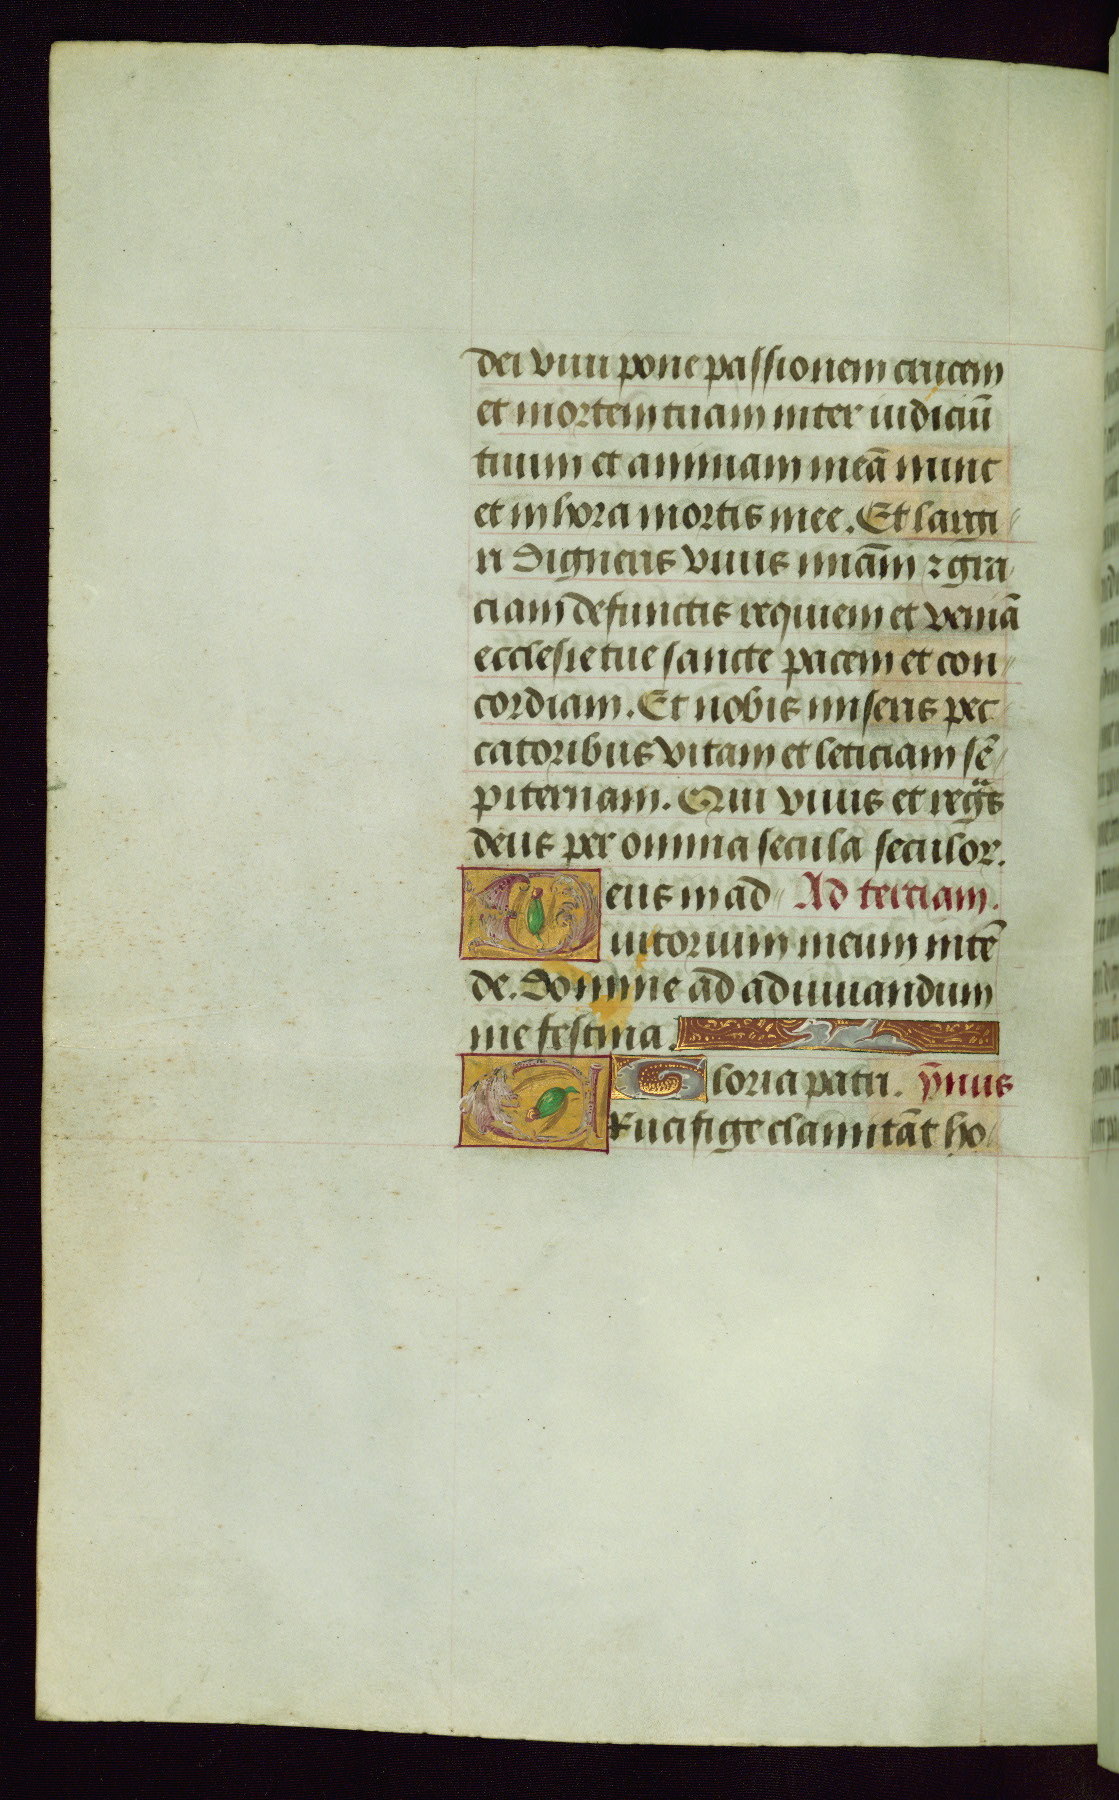 dei viui pone passionem crucem
et mortem tuam inter iudiciū
tuum et animam meā nunc
et in hora mortis mee. Et largi
ri digneris viuis miā̄m ⁊ gra
ciam defunctis requiem et veniā
ecclesie tue sancte pacem et con
cordiam. Et nobis miseris pec
catoribus vitam et leticiam sē
piternam. Qui viuis et regꝰs
deus per omnia secula seculor.
Deus in ad Ad terciam.
iutorium meum intē
de. Domine ad adiuuandum
me festina.
Gloria patri. ȳnus
CRucifige clamitāt ho